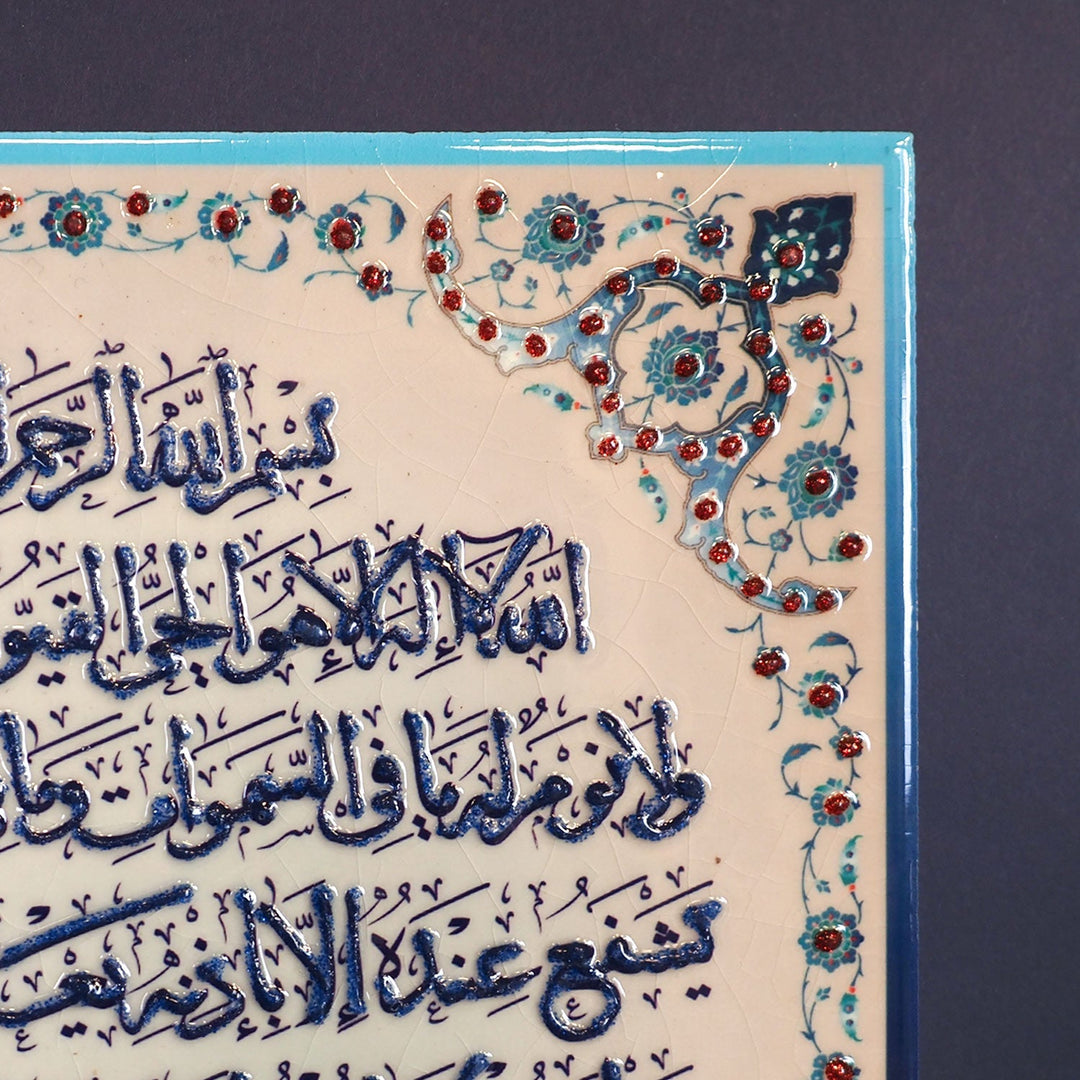 بِسْمِ اللّٰهِ الرَّحْمٰ
اَللّٰهُ لَا إِلٰهَ إِلَّا هُوَ الْحَيُّ الْقَيُّو
وَلَا نَوْمٌ لَهُ مَا فِي السَّمٰوَاتِ وَمَا
يَشْفَعُ عِنْدَهُ إِلَّا بِإِذْنِهِ يَعْ